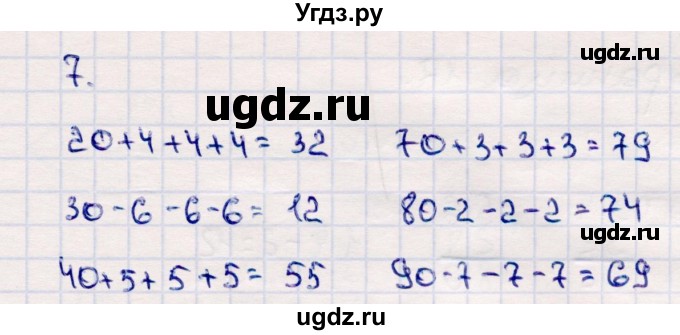 Угдз.ру
ugdz.ru
7.
ugdz.ru
20+4+4+4= 32 70+3+3+3=79
30-6-6-6= 12 80-2-2-2=74
ugdz.ru
40+5+5+5= 55 90-7-7-7=69
ugdz.ru